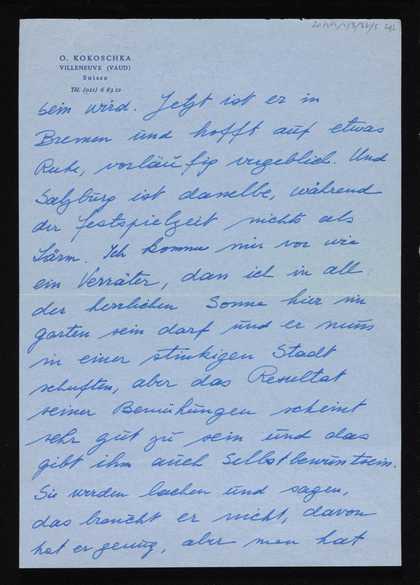 O. KOKOSCHKA
VILLENEUVE (VAUD)
Suisse
Tél. (021) 6 63 20
sein wird. Jetzt ist er in
Bremen und hofft auf etwas
Ruhe, vorläufig vergeblich. Und
Salzburg ist dasselbe, während
der Festspielzeit nichts als
Lärm. Ich komme mir vor wie
ein Verräter, dass ich in all
der herrlichen Sonne hier im
garten sein darf und er muss
in einer stinkigen Stadt
schuften, aber das Resultat
seiner Bemühungen scheint
sehr gut zu sein und das
gibt ihm auch Selbstbewusstsein.
Sie werden lachen und sagen,
das braucht er nicht, davon
hat er genug, aber man hat